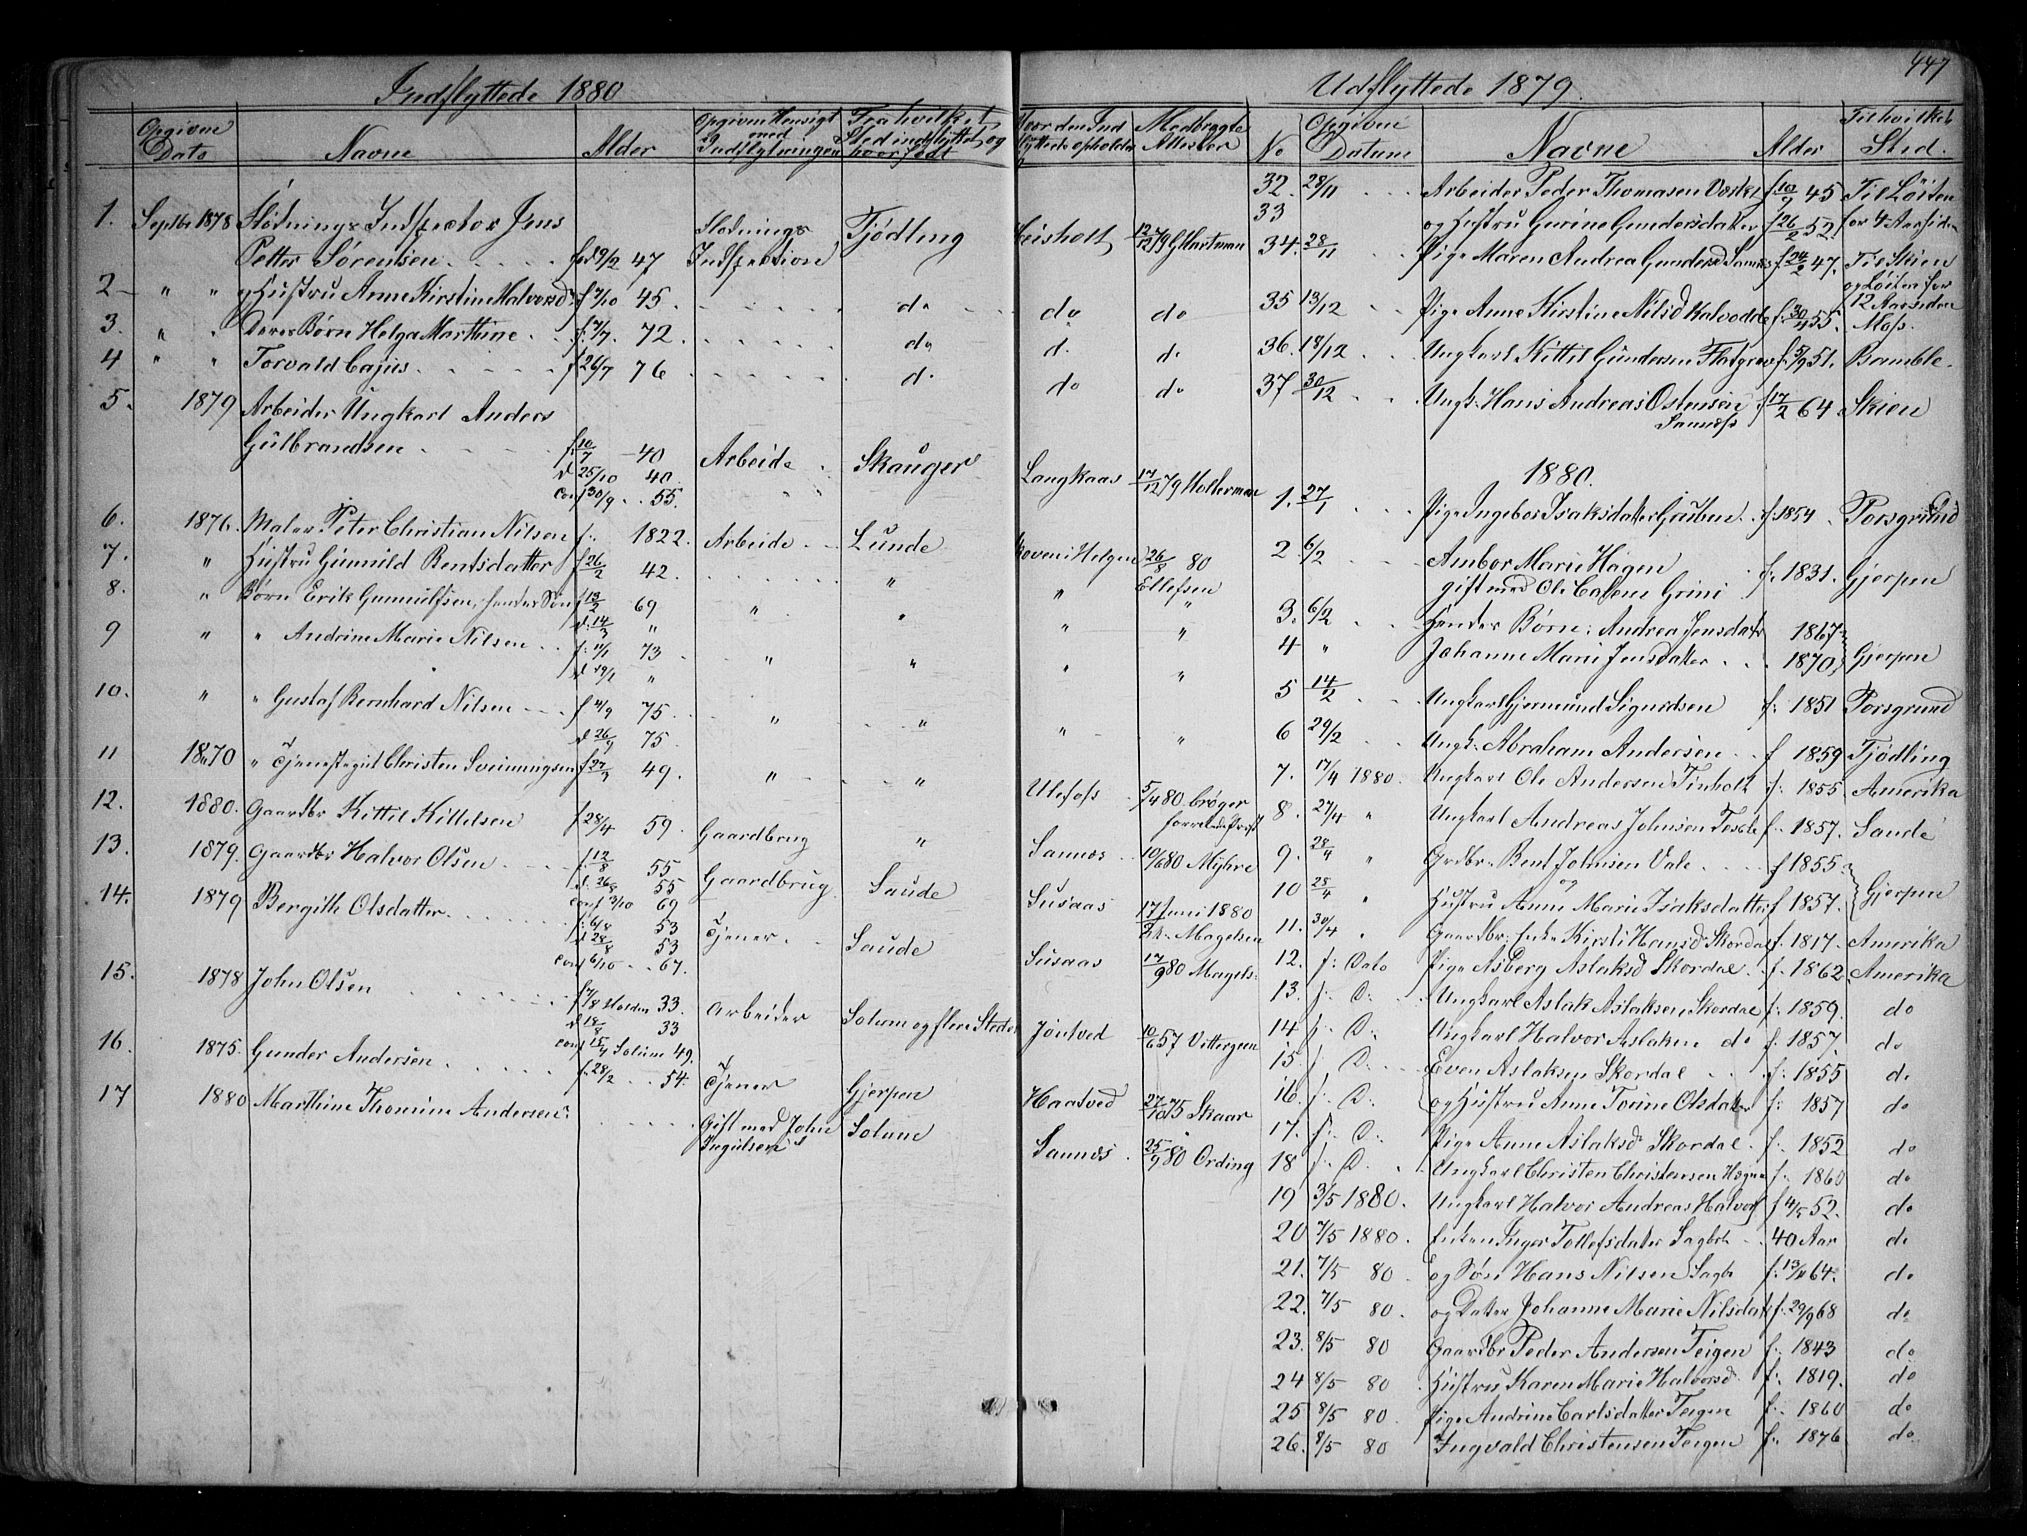 447
Indflyttede 1880
Opgiven Dato
Navne
Alder
Opgiven Hensigt med Indflytningen
Fra hvilket Sted indflyttet og hvor født
Hvor den Indflyttede opholder
Medbragte Attester
1. Septbr 1878 Fløtnings Indspector Jens
Petter Sørensen f. 47 Fløtnings Indspection Tjødling Geisholt 12/12 79 G Hartman
2 " " og Hustru Anne Kirstine Halvorsd f 7/10 45 do do do
3. " " Deres Børn Helga Marthine f. 7/7 72. do d. d.
4 " " Torvald Cajus f 26/7 76 d. do do
5. 1879 Arbeider Ungkarl Anders
Gulbrandsen f 10/7 40 Arbeide Skauger Langkaas 17/12 79
d 25/10 40
Conf 30/9 55.
6. 1876. Maler Peter Christian Nilsen f. 1822. Arbeide Lunde i Helgen 26/8 80
7. " Hustru Gunnild Bentsdatter f 26/2 42. " Ellefsen
8. " Børn Erik Gunnulfsen, hendes Søn f 13/2 69 " " " "
d. 14/3 "
9 " " Andrine Marie Nilsen f. 11/1 73 " " " "
d 19/1 "
10. " " Gustaf Bernhard Nilsen f 4/9 75. " " " "
d 26/9 75.
11 1870 " Tjenestegut Christen Sveinungsen f 27/3 49. " "
12. 1880. Gaardbr Kittil Kittelsen f 28/4 59. Gaardbrug " Ulefos 5/4 80
13. 1879. Gaardbr Halvor Olsen f. 12/8 55 Gaardbrug Saude Sannes 10/6 80 Myhre
d. 26/8 55
conf 3/10 69
14. 1879 Bergith Olsdatter f. 6/8 53 Tjener Saude Susaas 17 Juni 1880
d 28/8 53 Magelsen
Conf 6/10 67.
15. 1878 John Olsen f 7/8 Holden 33. Arbeider Solum og flere Steder Susaas 17/9 80 Magels:
d 18/8 33
Conf 15/4 Solum 49.
16. 1875. Gunder Andersen f. 28/2 54. Tjener Gjerpen Jøntved 10/6 57
17 1880 Marthine Thomine Andersen: Gift med John Ingulsen Solum Haatved 27/10 75 Skaar
Sannes 25/9 80 Ording
Udflyttede 1879.
No
Opgiven Datum
Navne
Alder
Til hvilket Sted.
32. 28/11 Arbeider Peder Thomasen f 10/9 45 Til Løiten
33 og Hustru Gurine Gundersdatter f 26/2 52. for 4 Aar siden
34. 28/11 Pige Maren Andrea Gundersd Sannes f 24/2 47. Til Skien
og Løiten for
12 Aar siden
35 13/12 Pige Anne Kirstine Nilsd f. 30/4 55. Moss.
36. 18/12 Ungkarl Kittil Gundersen f. 5/9 51. Bamble.
37 30/12 Ungk. Hans Andreas Ostensen f 17/2 64 Skien
Sannæs
1880.
1. 27/1 Pige Ingebor Isaksdatter Gruben f. 1854 Porsgrund
2 6/2 Ambor Marie Hagen
gift med Ole Grini f. 1831. Gjerpen
3. 6/2 hendes Børn: Andrea Jensdatter 1867
4 " Johanne Marie Jensdatter 1870, Gjerpen
5 14/2 Ungkarl Gjermund Sigurdsen f. 1851 Porsgrund
6 24/2 Ungk. Abraham Andersen f 1859 Tjødling
7. 17/4 1880. Ungkarl Ole Andersen Tinholt f. 1855 Amerika
8. 27/4 " Ungkarl Andreas Johnsen f. 1857. Saude
9. 28/4 " Grdbr. Bent Johnsen Vale f 1855
og
10 28/4 " Hustru Anne Marie Isaksdatter f 1857. Gjerpen
11. 30/4 " Gaardbr: Enke Kirsti Hansd Skordal f. 1817. Amerika
12. f. Dato Pige Asberg Aslaksd Skordal f. 1862 Amerika
13. f. D. Ungkarl Aslak Aslaksen Skordal f. 1859. do
14. f. D: Ungkarl Halvor Aslaksen do f. 1857 do
15. f. D: Even Aslaksen Skordal f. 1855 do
16. f. D: og Hustru Anne Torine Olsdatter f: 1857 do
17. f. D: Pige Anne Aslaksd Skordal f. 1852 do
18 f. D. Ungkarl Christen Christensen f. 1860 do
19 3/5 1880. Ungkarl Halvor Andreas Halvors f 4/5 52. do
20 7/5 1880. Enken Inger Tollefsdatter 40 Aar do
21. 7/5 80 og Søn Hans Nilsen f. 13/11 64. do
22. 7/5 80. og Datter Johanne Marie Nilsdat f. 29/9 68 do
23. 8/5 80 Gaardbr Peder Andersen Teigen f. 1843 do
24 8/5 80 Hustru Karen Marie Halvorsd f. 1819. do
25 8/5 80. Pige Andrine Carlsdatter Teigen f. 1860 do
26. 8/5 80 Ingvald Christensen Teigen f. 1876 do